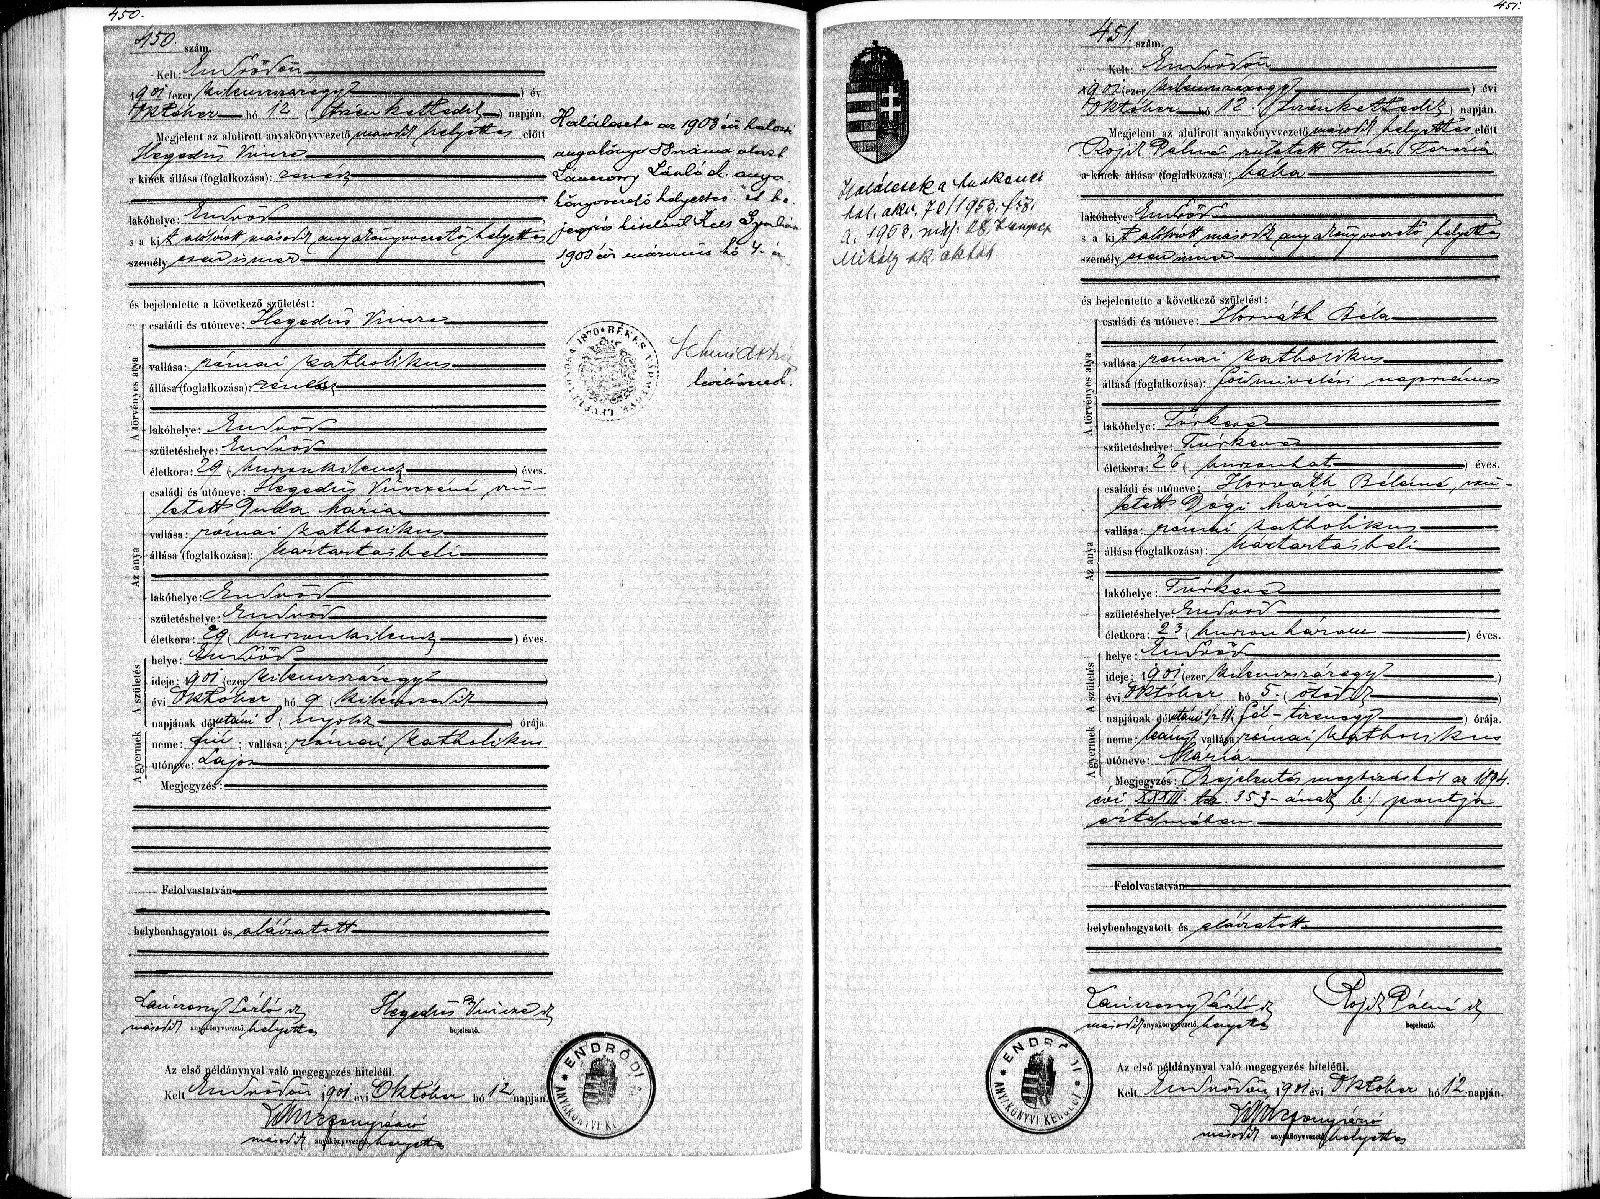 450.
450. szám.
Kelt: Endrődön
1901 (ezer kilenczszázegy) év
Október hó 12 (tizenkettedik) napján.
Megjelent az alulirott anyakönyvvezető második helyettes előtt
Hegedüs Vincze
a kinek állása (foglalkozása):
lakóhelye: Endrőd
s a kit alólirott második anyakönyvvezető helyettes
személyesen ismer
és bejelentette a következő születést:
A törvényes apa
családi és utóneve: Hegedüs Vincze
vallása: római katholikus
állása (foglalkozása):
lakóhelye: Endrőd
születéshelye: Endrőd
életkora: 29 (huszonkilencz) éves.
Az anya
családi és utóneve: Hegedüs Vinczéné, szü-
letett Duda Mária
vallása: római katholikus
állása (foglalkozása): háztartásbeli
lakóhelye: Endrőd
születéshelye: Endrőd
életkora: 29 (huszonkilencz) éves.
A születés
helye: Endrőd
ideje: 1901 (ezer kilenczszázegy)
évi Október hó 9 (kilenczedik)
napjának délutáni 8 (nyolcz) órája
A gyermek
neme: fiú; vallása: római katholikus
utóneve: Lajos
Megjegyzés:
Felolvastatván
helybenhagyatott és aláiratott
Lánczony László
második anyakönyvvezető helyettes
Hegedüs Vincze
bejelentő.
Az első példánynyal való megegyezés hiteléül.
Kelt Endrődön 1901 évi Október hó 12 napján.
második anyakönyvvezető helyettes
ENDRŐDI
Halálesete az 1903 évi halotti
László
anyakönyvvezető helyettes
1903 évi márczius hó 4. én
BÉKÉS VÁRMEGYE
levéltárnok.
451.
451. szám.
Kelt: Endrődön
1901 (ezer kilenczszázegy) évi
Október hó 12 (tizenkettedik) napján.
Megjelent az alulirott anyakönyvvezető második helyettes előtt
Rojik Pálné született Timár Terézia
a kinek állása (foglalkozása): bába
lakóhelye: Endrőd
s a kit alólirott második anyakönyvvezető helyettes
személyesen ismer
és bejelentette a következő születést:
A törvényes apa
családi és utóneve: Horváth Béla
vallása: római katholikus
állása (foglalkozása): földmivelési napszámos
lakóhelye: Túrkeve
születéshelye: Túrkeve
életkora: 26 (huszonhat) éves.
Az anya
családi és utóneve: Horváth Béláné, szü-
letett Dógi Mária
vallása: római katholikus
állása (foglalkozása): háztartásbeli
lakóhelye: Túrkeve
születéshelye: Endrőd
életkora: 23 (huszonhárom) éves.
A születés
helye: Endrőd
ideje: 1901 (ezer kilenczszázegy)
évi Október hó 5 (ötödik)
napjának délutáni 1/2 11 (fél-tizenegy) órája.
A gyermek
neme: leány vallása: római katholikus
utóneve: Mária
Megjegyzés: Bejelentés megbizásból az 1894.
évi XXXIII. tcz. 35 §-ának b) pontja
értelmében
Felolvastatván
helybenhagyatott és aláiratott
Lánczony László
második anyakönyvvezető helyettes
Rojik Pálné
bejelentő.
Az első példánynyal való megegyezés hiteléül.
Kelt Endrődön 1901 évi Október hó 12 napján.
második anyakönyvvezető helyettes
ENDRŐDI
Mihály